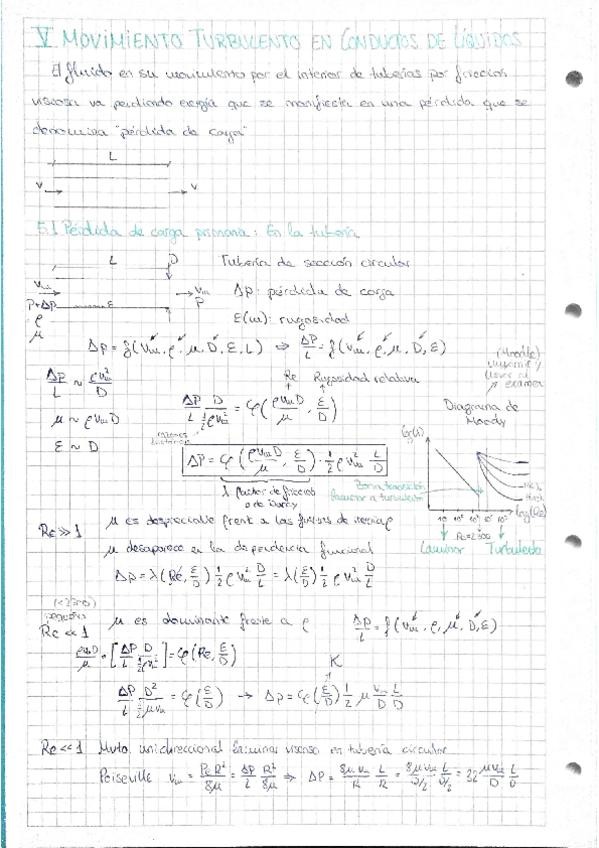 V MOVIMIENTO TURBULENTO EN CONDUCTOS DE LÍQUIDOS
El fluido en su movimiento por el interior de tuberías por fricción
viscosa va perdiendo energía que se manifiesta en una pérdida que se
denomina "pérdida de carga"
L
V V
5.1 Pérdida de carga primaria: En la tubería
L D Tubería de sección circular
Vm Vm Δp: pérdida de carga
P+ΔP ε P
ρ ε(m): rugosidad
μ
Δp = f(Vm, ρ, μ, D, ε, L) ⇒ ΔP/L = f(Vm, ρ, μ, D, ε)
(Moodle)
llevar al examen
ΔP/L ~ ρVm²/D
Re Rugosidad relativa
ΔP/L D/(½ρVm²) = φ(ρVmD/μ, ε/D)
Diagrama de Moody
μ ~ ρVmD
ε ~ D
ΔP = φ(ρVmD/μ, ε/D) · ½ρVm² L/D
log(λ)
λ factor de fricción
o de Darcy
Zona transición
laminar a turbulento
log(Re)
Re=2300
Laminar Turbulento
Re >> 1 μ es despreciable frente a las fuerzas de inercia
μ desaparece en la dependencia funcional
Δp = λ(Re, ε/D) ½ρVm² D/L = λ(ε/D) ½ρVm² L/D
(<2300)
pequeños
Re << 1 μ es dominante frente a ρ ΔP/L = f(Vm, ρ, μ, D, ε)
ρVmD/μ · [ΔP/L D/(½ρVm²)] = φ(Re, ε/D)
K
ΔP/L D²/(½μVm) = φ(ε/D) → Δp = φ(ε/D) ½ μ Vm/D L/D
Re << 1 Mvto. unidireccional laminar viscoso en tubería circular
Poiseuille Vm = PeR²/8μ = ΔP/L R²/8μ ⇒ ΔP = 8μVm/R L/R = 8μVm/(D/2) L/(D/2) = 32 μVm/D L/D